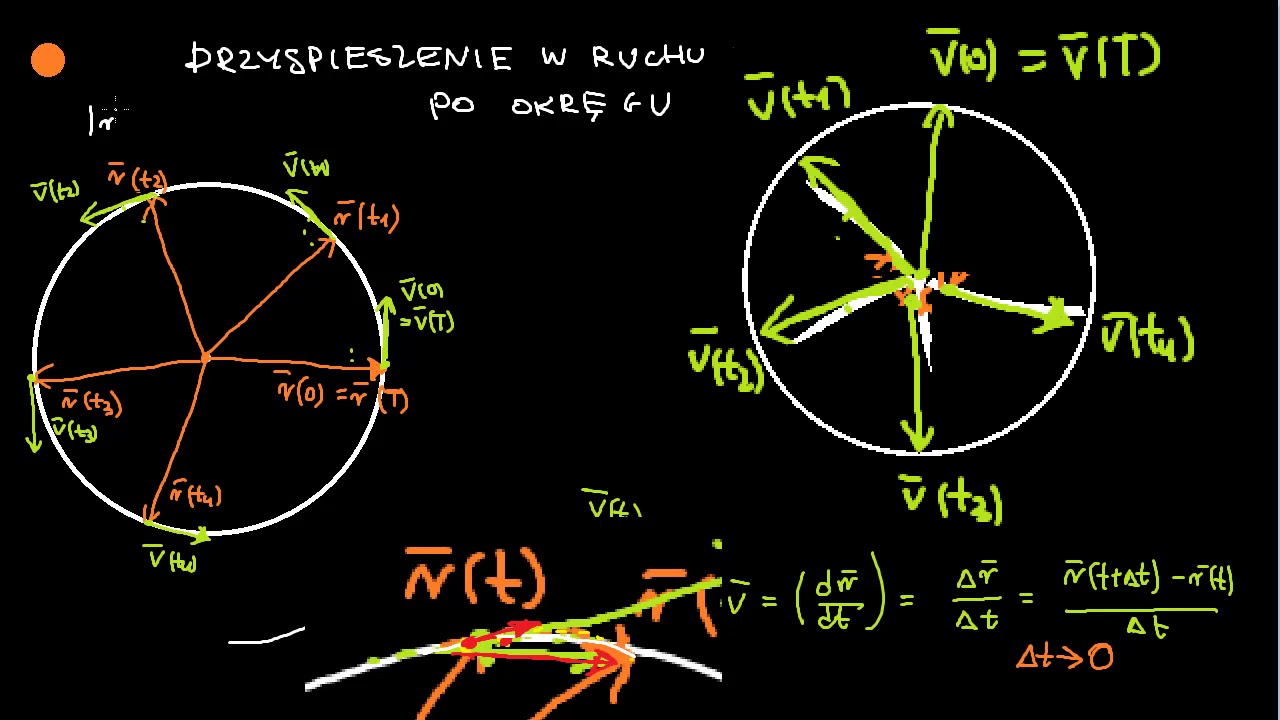 PRZYSPIESZENIE W RUCHU
PO OKRĘGU
|r
r̄(t2)
v̄(t2)
r̄(t1)
v̄(0)
=v̄(T)
r̄(0) = r̄(T)
r̄(t3)
v̄(t3)
r̄(t4)
v̄(t4)
v̄(0) = v̄(T)
v̄(t1)
v̄(t2)
v̄(t4)
v̄(t3)
v̄(t)
r̄(t)
r̄(
v̄ = (dr̄/dt) = Δr̄/Δt = r̄(t+Δt) - r̄(t)/Δt
Δt→0